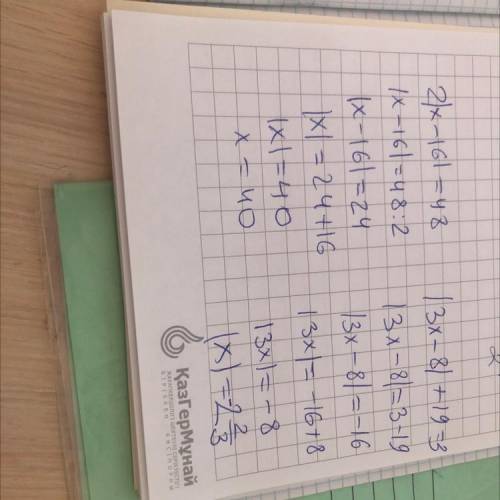 2|x-16|=48
|x-16|=48:2
|x-16|=24
|x|=24+16
|x|=40
x=40
|3x-8|+19=3
|3x-8|=3-19
|3x-8|=-16
|3x|=-16+8
|3x|=-8
|x|=-2 2/3
ҚазГерМұнай